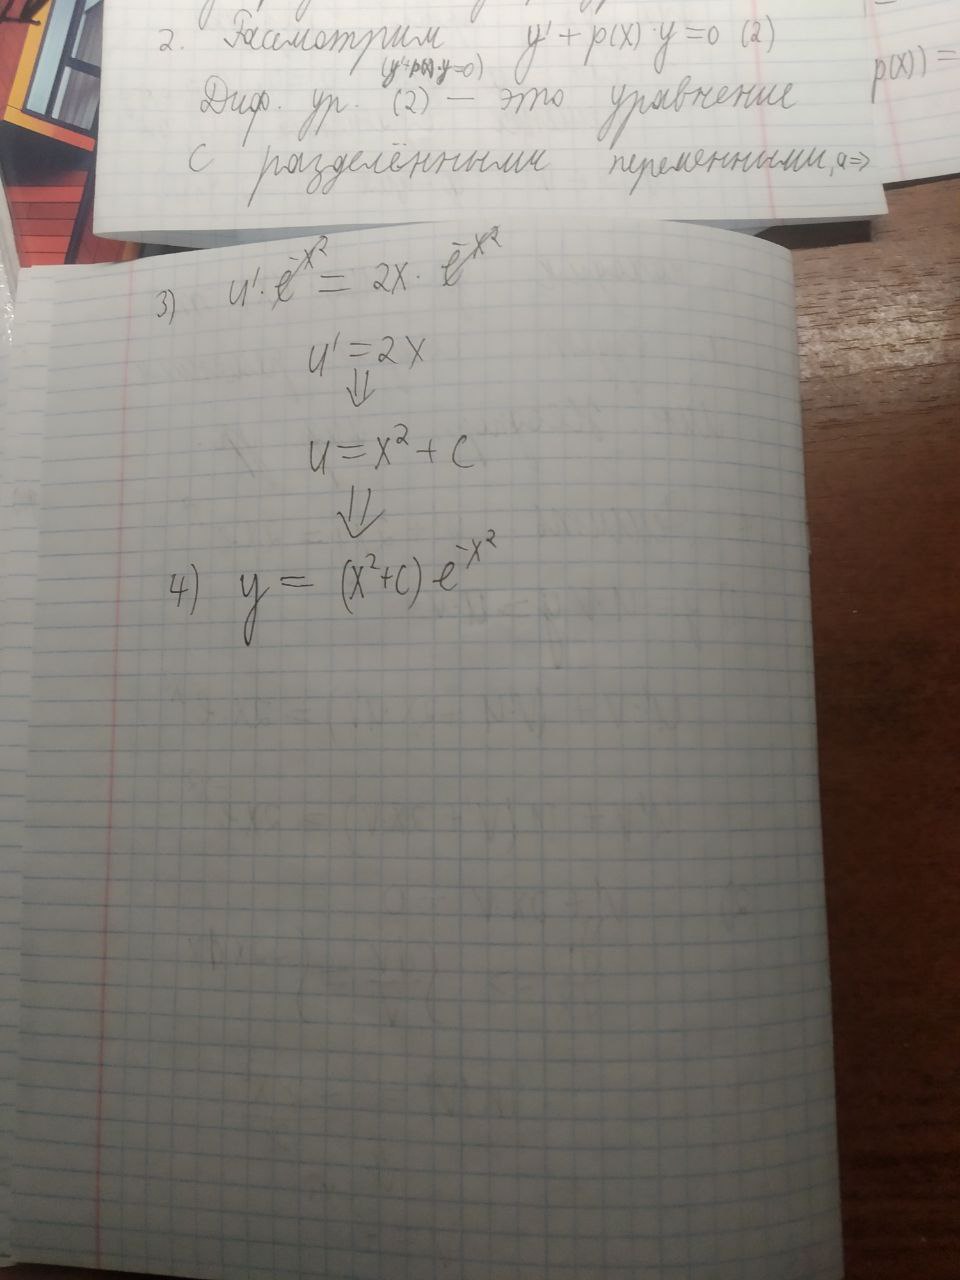 2. Рассмотрим y' + p(x) · y = 0 (2)
(y'+p(x)·y=0)
p(x)) =
Диф. ур. (2) — это уравнение
с разделёнными переменными, а =>
3) u' · e^{-x^2} = 2x · e^{-x^2}
u' = 2x
⇓
u = x^2 + c
⇓
4) y = (x^2+c) e^{-x^2}